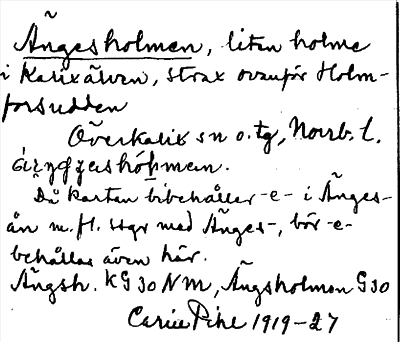 Ängesholmen, liten holme
i Kalixälven, strax ovanför Holm-
forsudden
Överkalix sn o. tg, Norrb. l.
Då kartan bibehåller -e- i Änges-
ån m. fl. ssgr med Änges-, bör -e-
behållas även här.
Ängsh. KG 30 NM, Ängsholmen G 30
Carin Pihl 1919-27